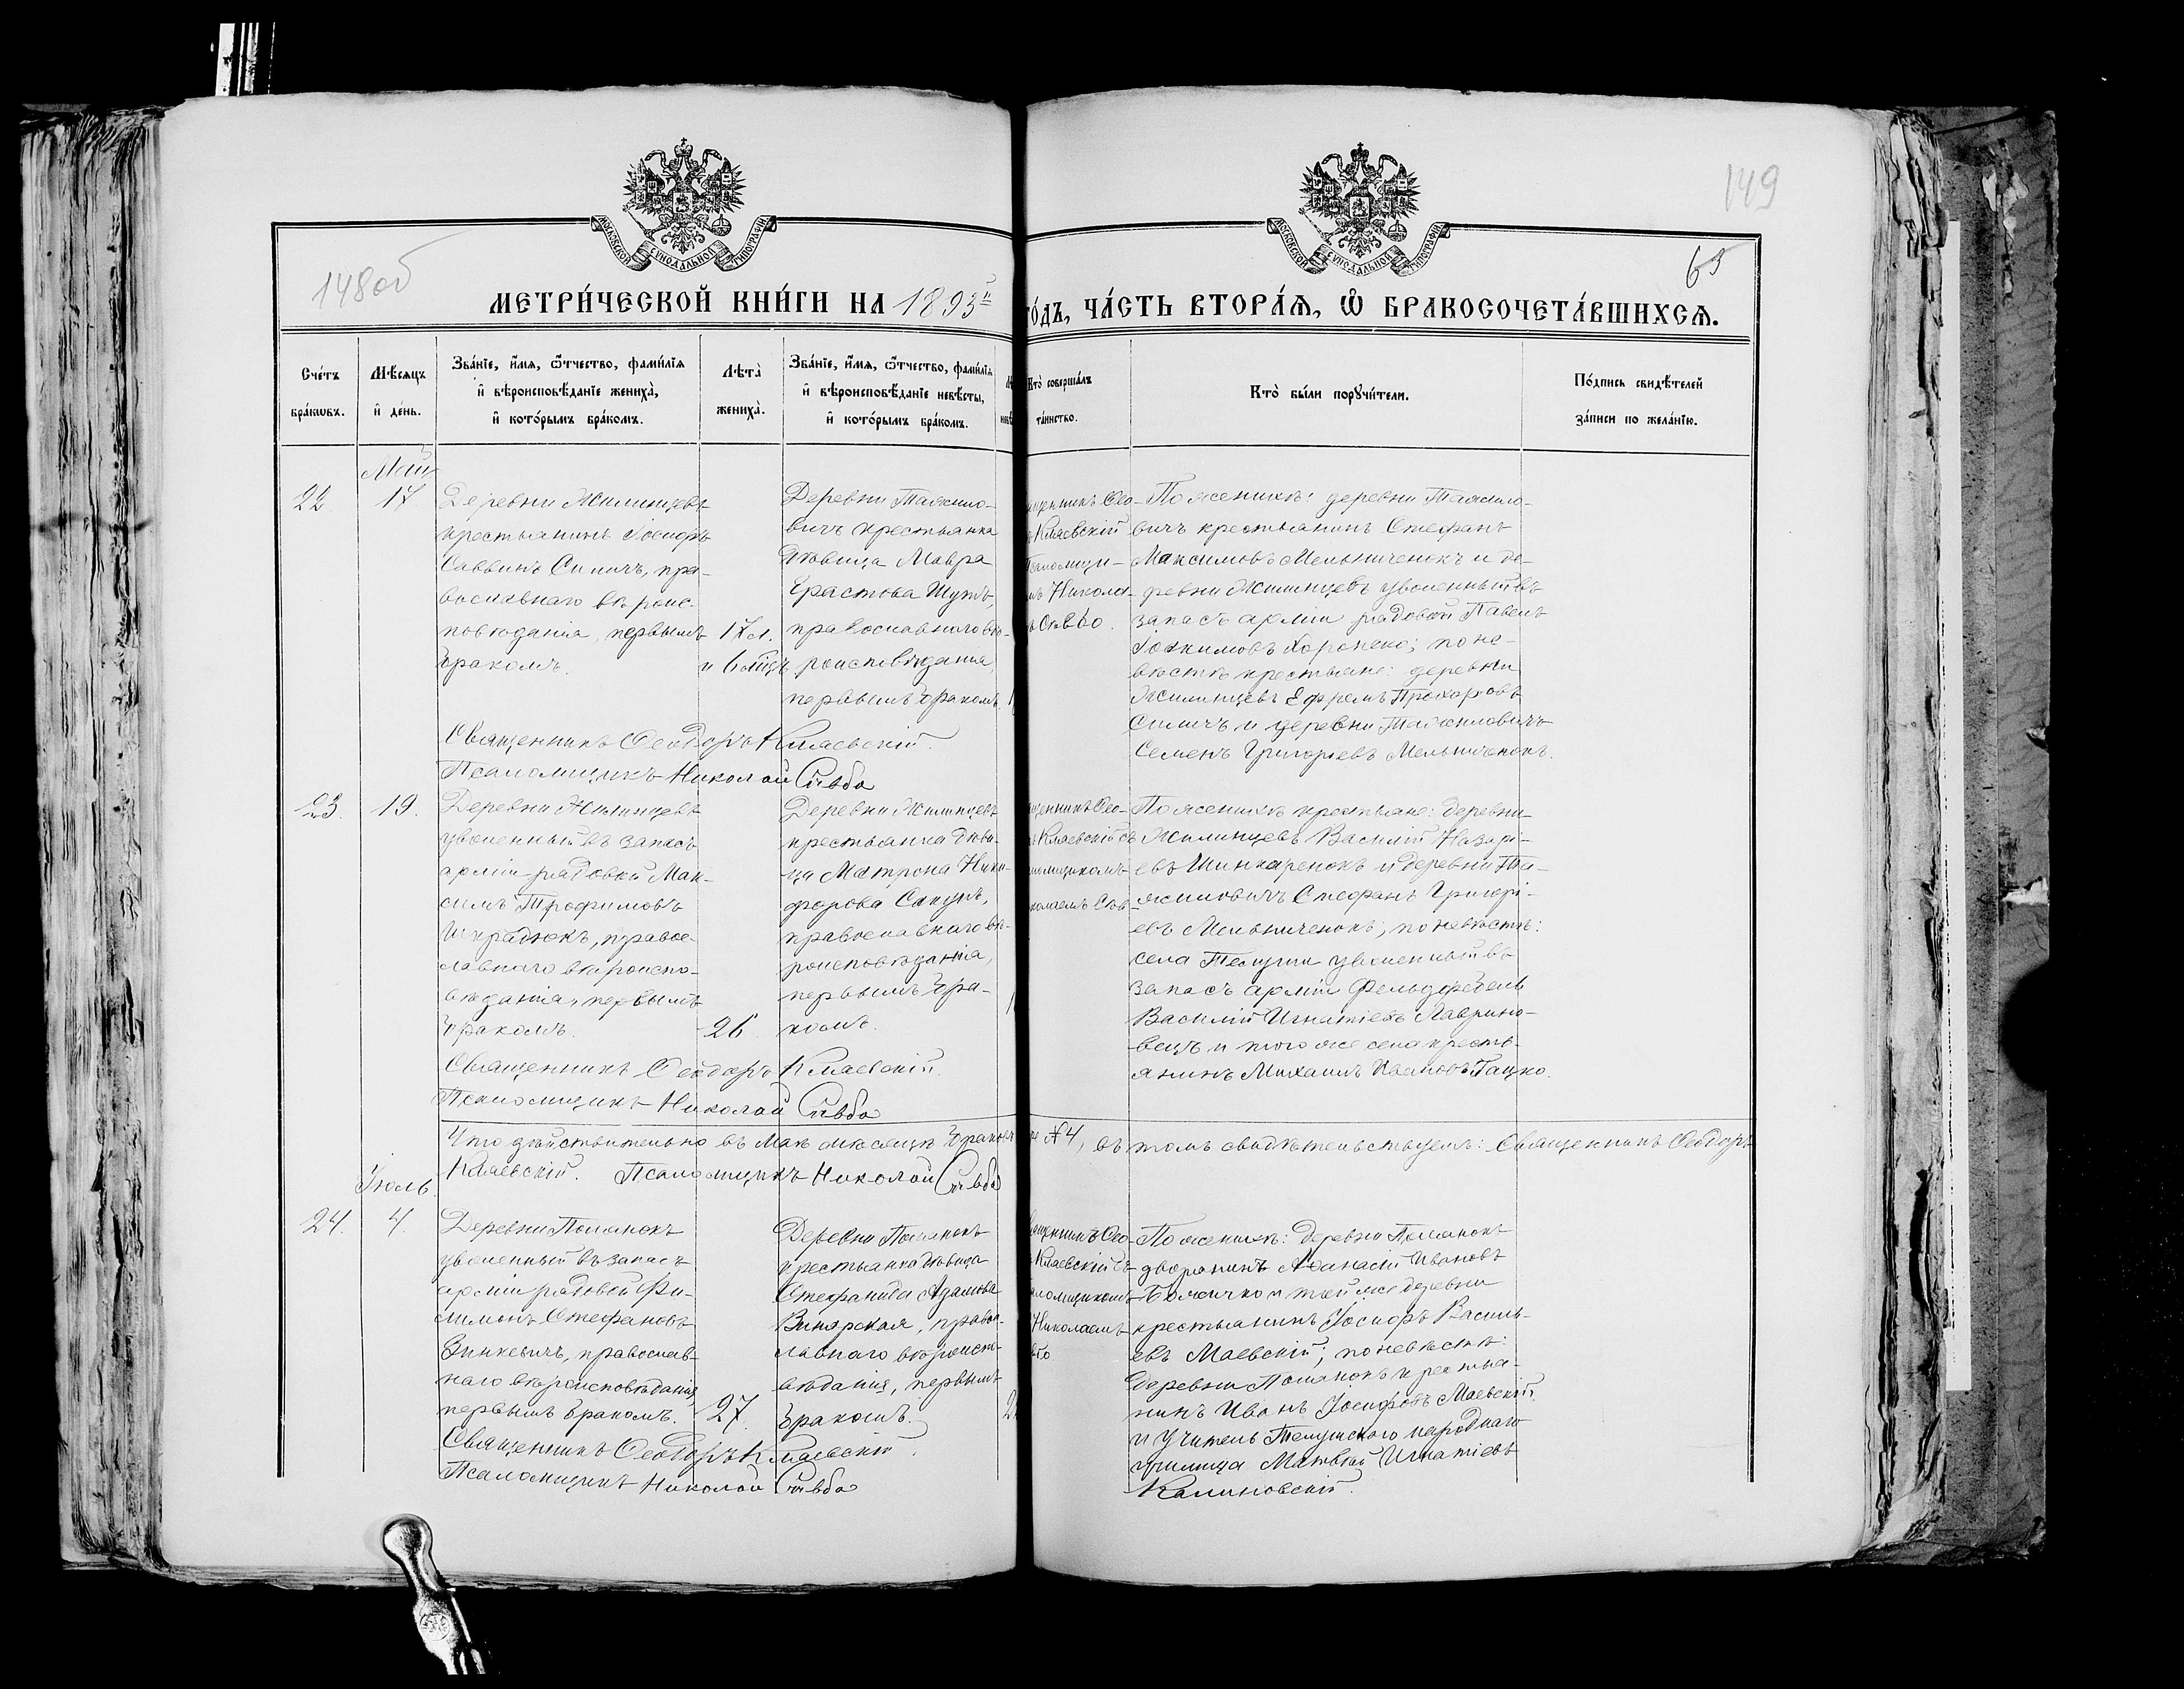 149
148об
65
МОСКОВСКОЙ СѴНОДАЛЬНОЙ ТИПОГРАФІИ
МОСКОВСКОЙ СѴНОДАЛЬНОЙ ТИПОГРАФІИ
МЕТРИ́ЧЕСКОЙ КНИ́ГИ НА 1893й
ГО́ДЪ, ЧА́СТЬ ВТОРА́Я, Ѿ БРАКОСОЧЕТА́ВШИХСЯ.
Сче́тъ
бра́кѡвъ.
Мѣ́сяцъ
и҆ де́нь.
Зва́нїе, и҆́мя, ѻ҆́тчество, фами́лїя
и҆ вѣроисповѣ́данїе жениха̀,
и҆ кото́рымъ бра́комъ.
Лѣта̀
жениха̀.
Зва́нїе, и҆́мя, ѻ҆́тчество, фами́лїя
и҆ вѣроисповѣ́данїе невѣ́сты,
и҆ кото́рымъ бра́комъ.
Кто̀ соверша́лъ
та́инство.
Кто̀ бы́ли порꙋчи́тели.
По́дпись свидѣ́телей
за́писи по жела́нїю.
Май
22
17
Деревни Жилинцевъ
крестьянинъ Іосифъ
Саввинъ Силичъ, пра-
вославнаго вѣроис-
повѣданія, первымъ
бракомъ.
17 л.
и 6 мѣц.
Деревни Тажило-
вичъ крестьянка
дѣвица Мавра
Ерастова Шутъ,
православнаго вѣ-
роисповѣданія,
первымъ бракомъ
щенникъ Ѳео-
Кмаевскій
Псаломщи-
Никола-
Сѣвбо.
По женихѣ: деревни Тажило-
вичъ крестьянинъ Стефанъ
Максимовъ Мельниченокъ и де-
ревни Жилинцевъ уволенный въ
запасъ арміи рядовой Павелъ
Іоакимовъ Хоронеко; по не-
вѣстѣ крестьяне: деревни
Жилинцевъ Ефремъ Прохоровъ
Силичъ и деревни Тажиловичъ
Семенъ Григорьевъ Мельниченокъ.
Священникъ Ѳеодоръ Кмаевскій.
Псаломщикъ Николай Сѣвбо
23.
19.
Деревни Жилинцевъ
уволенный въ запасъ
арміи рядовой Мак-
симъ Трофимовъ
Шкрадюкъ, правос-
лавнаго вѣроиспо-
вѣданія, первымъ
бракомъ.
26.
Деревни Жилинцевъ
крестьянка дѣви-
ца Матрона Ники-
форова Сакунъ,
православнаго вѣ-
роисповѣданія,
первымъ бра-
комъ.
щенникъ Ѳео-
Кмаевскій съ
ломщикомъ
колаемъ Сѣв-
По женихѣ крестьяне: деревни
Жилинцевъ Василій Назарі-
евъ Шинкаренокъ и деревни Та-
жиловичъ Стефанъ Григорі-
евъ Мельниченокъ; по невѣстѣ:
села Телуши уволенный въ
запасъ арміи Фельдфебель
Василій Игнатіевъ Лаврино-
вецъ и того же села кресть-
янинъ Михаилъ Ивановъ Гацко.
Священникъ Ѳеодоръ Кмаевскій.
Псаломщикъ Николай Сѣвбо
Что дѣйствительно въ Маѣ мѣсяцѣ браковъ № 4, въ томъ свидѣтельствуемъ: Священникъ Ѳеодоръ
Кмаевскій. Псаломщикъ Николай Сѣвбо
Іюль.
24.
4.
Деревни Полянокъ
уволенный въ запасъ
арміи рядовой Фи-
лимонъ Стефановъ
Зинкевичъ, православ-
наго вѣроисповѣданія,
первымъ бракомъ.
27.
Деревни Полянокъ
крестьянка дѣвица
Стефанида Адамова
Винярская, правос-
лавнаго вѣроиспо-
вѣданія, первымъ
бракомъ.
щенникъ Ѳео-
Кмаевскій съ
ломщикомъ
Николаемъ
вбо
По женихѣ: деревни Полянокъ
дворянинъ Аѳанасій Ивановъ
Божичко и той же деревни
крестьянинъ Іосифъ Василь-
евъ Маевскій; по невѣстѣ:
деревни Полянокъ крестья-
нинъ Иванъ Іосифовъ Маевскій
и учитель Телушского народнаго
училища Матвѣй Игнатіевъ
Калиновскій.
Священникъ Ѳеодоръ Кмаевскій.
Псаломщикъ Николай Сѣвбо